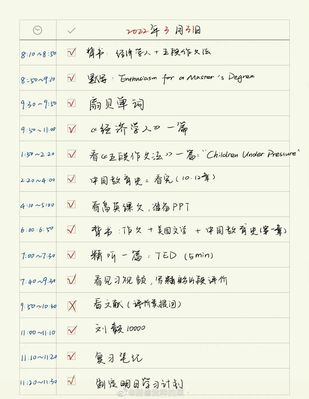 2022年3月31日
8:10~8:50 背书:经济学人+五段作文法
8:50~9:20 默写:Enthusiasm for a Master's Degree
9:30~9:50 扇贝单词
9:50~11:00 《经济学人》一篇
1:50~2:20 看《五段作文法》一篇:"Children Under Pressure"
2:20~4:00 中国教育史:看完(10.12章)
4:10~5:00 看高英课文,准备PPT
6:00~6:50 背书:作文+美国文学+中国教育史(第一章)
7:00~7:30 精听一篇:TED(5min)
7:40~9:30 看见习视频,写
9:50~10:50 看文献(
11:00~11:10 刘毅10000
11:10~11:20 复习笔记
11:20~11:30 制定明日学习计划